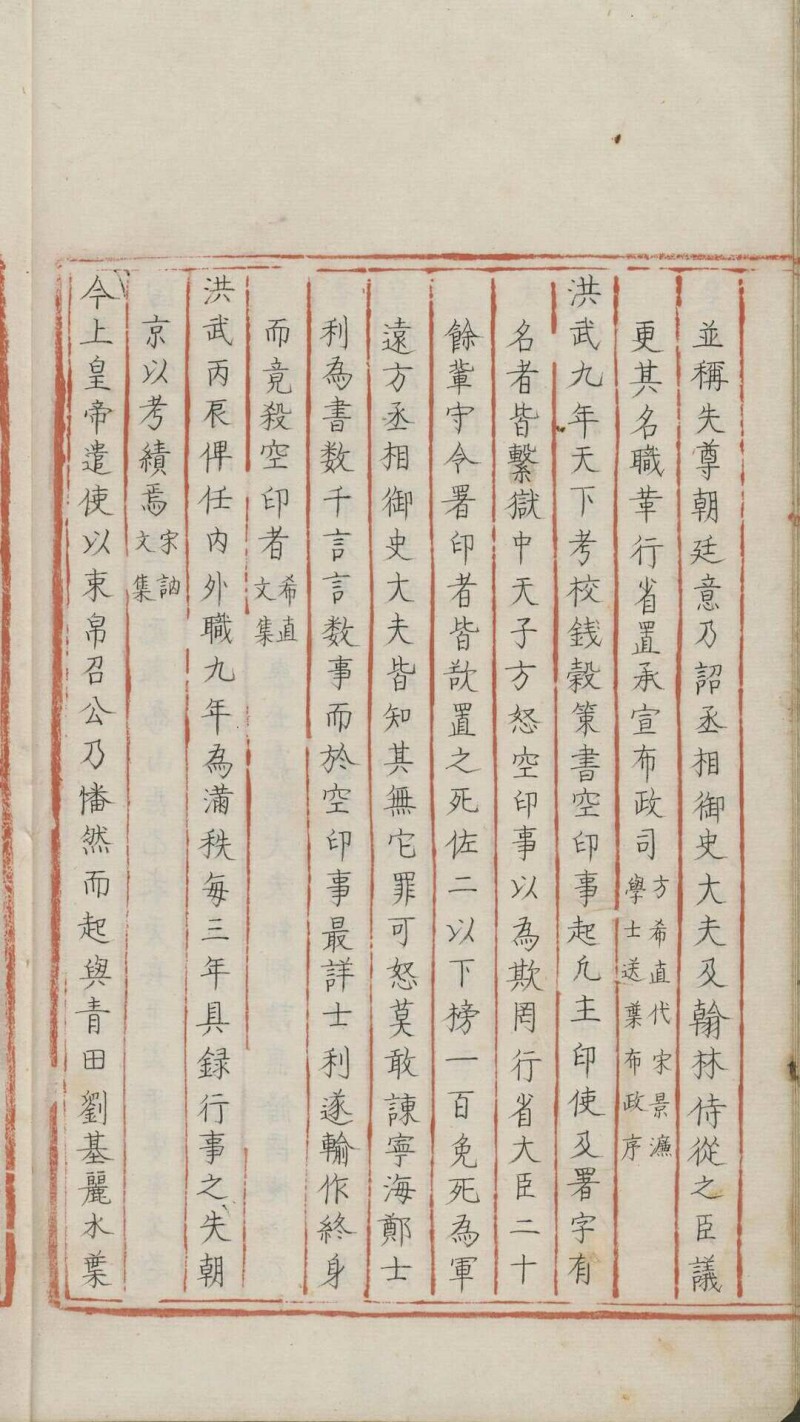 並稱失尊朝廷意乃詔丞相御史大夫及翰林侍從之臣議
更其名職革行省置承宣布政司方希直代宋景濂學士送葉布政序
洪武九年天下考校銭穀策書空印事起凢主印使及署字有
名者皆繫獄中天子方怒空印事以為欺罔行省大臣二十
餘軰守令署印者皆欲置之死佐二以下榜一百免死為軍
遠方丞相御史大夫皆知其無它罪可怒莫敢諫寧海鄭士
利為書数千言言数事而於空印事最詳士利遂輸作終身
而竟殺空印者希直文集
洪武丙辰俾任内外職九年為滿秩每三年具録行事之失朝
京以考績焉宋訥文集
今上皇帝遣使以束帛召公乃憣然而起與青田劉基麗水葉